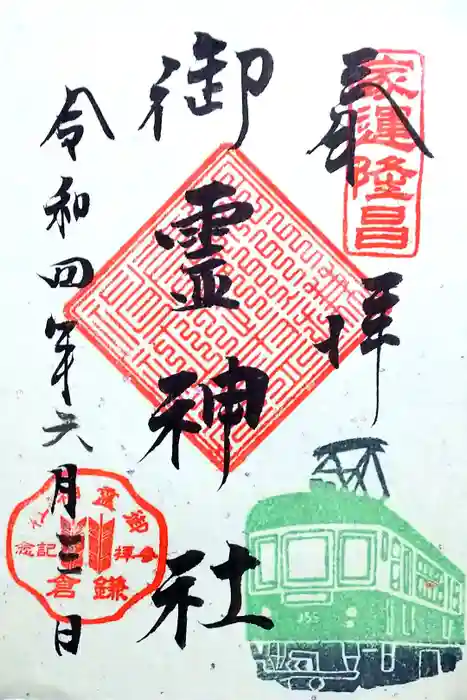 奉拝
家運隆昌
御霊神社
令和四年六月三日
御霊神社
参拝記念
鎌倉
355